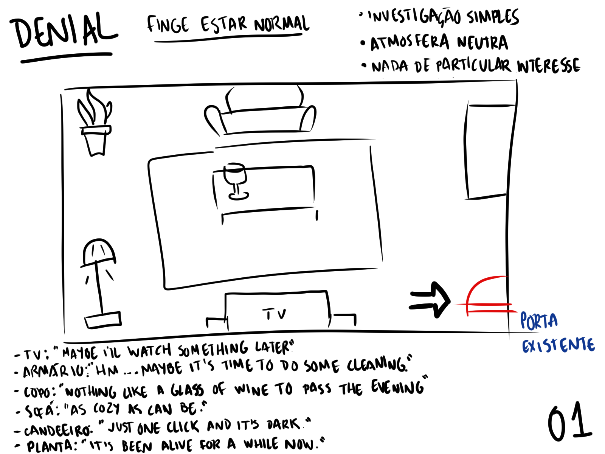 DENIAL
FINGE ESTAR NORMAL
• INVESTIGAÇÃO SIMPLES
• ATMOSFERA NEUTRA
• NADA DE PARTICULAR INTERESSE
TV
PORTA
EXISTENTE
- TV: "MAYBE I'LL WATCH SOMETHING LATER"
- ARMÁRIO: "HM... MAYBE IT'S TIME TO DO SOME CLEANING."
- COPO: "NOTHING LIKE A GLASS OF WINE TO PASS THE EVENING"
- SOFÁ: "AS COZY AS CAN BE."
- CANDEEIRO: "JUST ONE CLICK AND IT'S DARK."
- PLANTA: "IT'S BEEN ALIVE FOR A WHILE NOW."
01